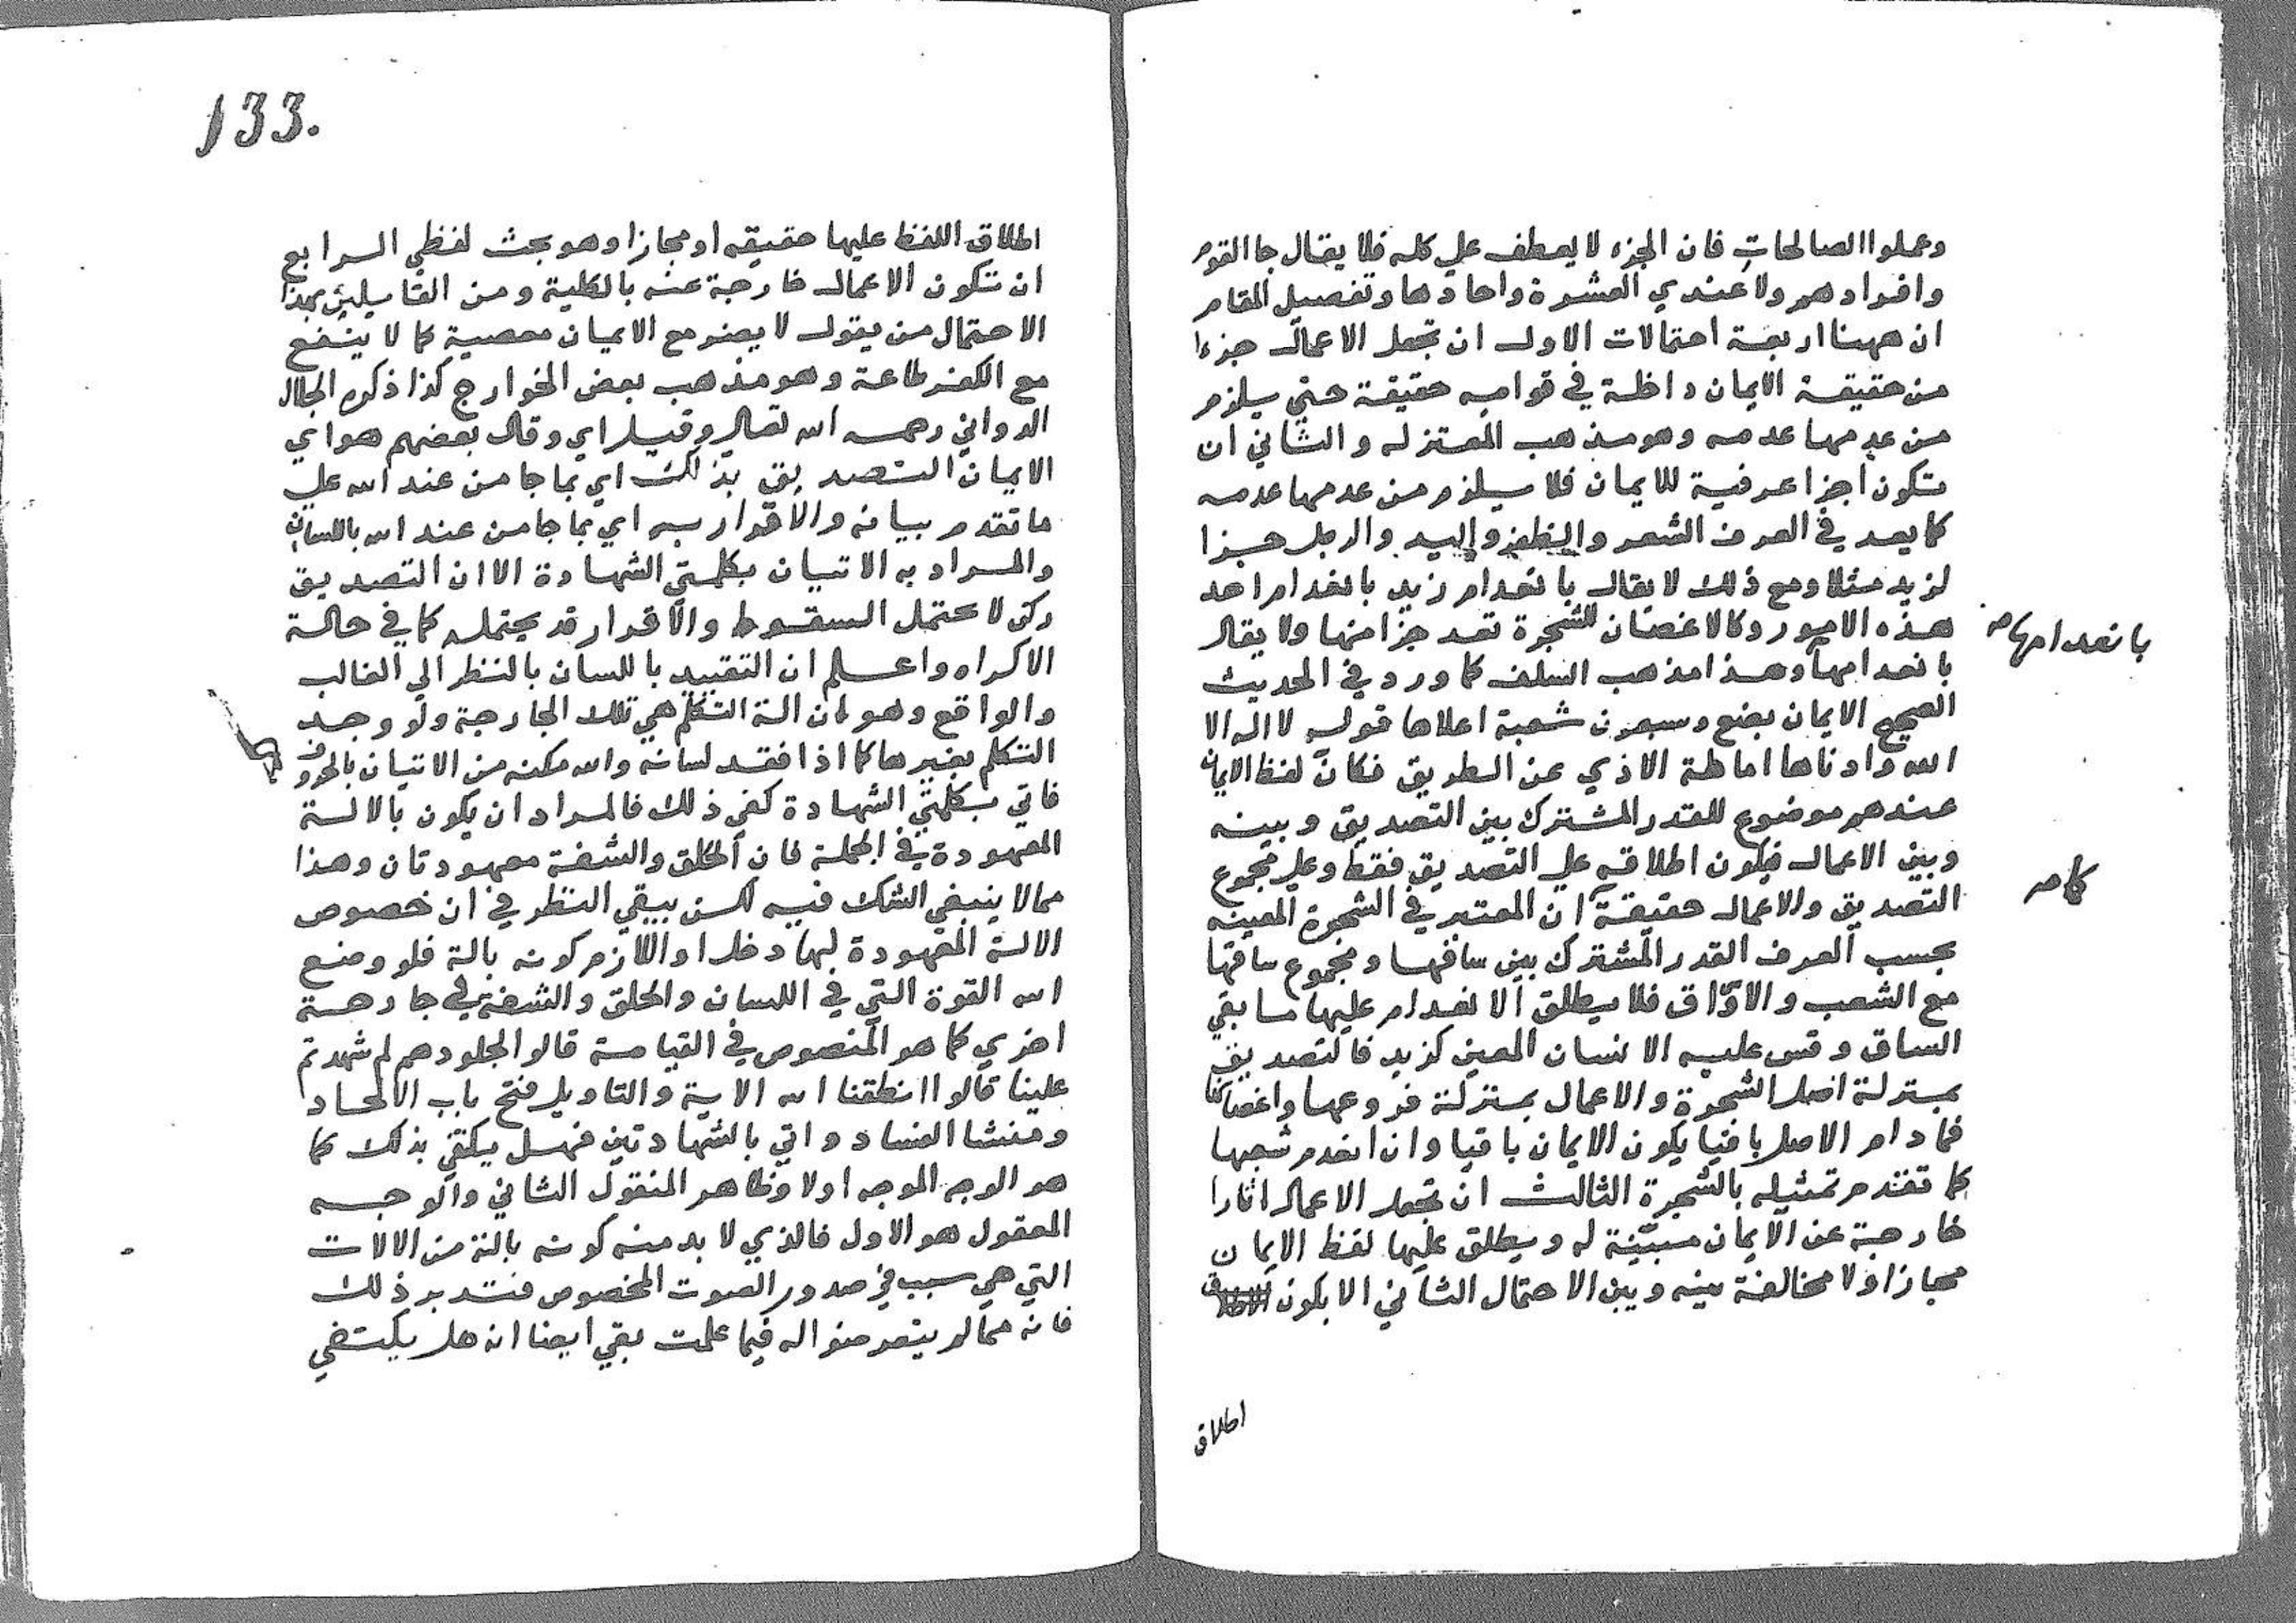 وعملوا الصالحات فان الجزء لا يعطف علي كله فلا يقال جا القوم
وافرادهم ولا عندي العشرة واحادها وتفصيل المقام
ان ههنا اربعة احتمالات الاول ان تجعل الاعمال جزءا
من حقيقة الايمان داخلة في قوامه حقيقة حتي يلزم
من عدمها عدمه وهو مذهب المعتزله والثاني ان
تكون اجزا عرفية للايمان فلا يلزم من عدمها عدمه
كما يعد في العرف الشعر والظفر واليد والرجل جزا
لزيد مثلا ومع ذلك لا يقال بانعدام زيد بانعدام احد
هذه الامور وكالاغصان للشجرة تعد جزا منها ولا يقال
بانعدامها صح
بانعدامها وهذا مذهب السلف كما ورد في الحديث
الصحيح الايمان بضع وسبعون شعبة اعلاها قول لا اله الا
الله وادناها اماطة الاذي عن الطريق فكان لفظ الايمان
عندهم موضوع للقدر المشترك بين التصديق وبينه
وبين الاعمال فيكون اطلاقه علي التصديق فقط وعلي مجموع
التصديق والاعمال حقيقة ان المعتبر في الشجرة المعينه
كما صح
بحسب العرف القدر المشترك بين ساقها ومجموع ساقها
مع الشعب والاوراق فلا يطلق الانعدام عليها ما بقي
الساق وقس عليه الانسان المعين كزيد فالتصديق
بمنزلة اصل الشجرة والاعمال بمنزلة فروعها واغصانها
فما دام الاصل باقيا يكون الايمان باقيا وان انعدم شعبها
كما تقدم تمثيله بالشجرة الثالث ان تجعل الاعمال اثارا
خارجة عن الايمان مسببة له ويطلق عليها لفظ الايمان
مجازا ولا مخالفة بينه وبين الاحتمال الثاني الا بكون
اطلاق
133.
اطلاق اللفظ عليها حقيقه او مجازا وهو بحث لفظي الرابع
ان تكون الاعمال خارجة عنه بالكلية ومن القايلين بهذا
الاحتمال من يقول لا يضر مع الايمان معصية كما لا ينفع
مع الكفر طاعة وهو مذهب بعض الخوارج كذا ذكره الجلال
الدواني رحمه الله تعالي وقيل اي وقال بعضهم هو اي
الايمان التصديق بذلك اي بما جا من عند الله علي
ما تقدم بيانه والاقرار به اي بما جا من عند الله باللسان
والمراد به الاتيان بكلمتي الشهادة الا ان التصديق
ركن لا يحتمل السقوط والاقرار قد يحتمله كما في حالة
الاكراه واعلم ان التقييد باللسان بالنظر الي الغالب
والواقع وهو ان الة التكلم هي تلك الجارحة ولو وجد
التكلم بغيرها كما اذا فقد لسانه والله مكنه من الاتيان بالحروف
فاتي بكلمتي الشهادة كفي ذلك فالمراد ان يكون بالالة
المعهودة في الجملة فان الحلق والشفة معهودتان وهذا
مما لا ينبغي الشك فيه لكن يبقي النظر في ان خصوص
الالة المعهودة لها دخل او اللازم كونه بالة فلو وضع
الله القوة التي في اللسان والحلق والشفة في جارحة
اخري كما هو المنصوص في القيامة قالوا لجلودهم لم شهدتم
علينا قالوا انطقنا الله الاية والتاويل فتح باب الالحاد
ومنشا الفساد واتي بالشهادتين فهل يكتفي بذلك كما
هو الوجه الموجه اولا وظاهر المنقول الثاني والوجه
المعقول هو الاول فالذي لا بد منه كونه بالة من الالات
التي هي سبب في صدور الصوت المخصوص فتدبر ذلك
فانه مما لم يتعرضوا له فيما علمت بقي ايضا انه هل يكتفي